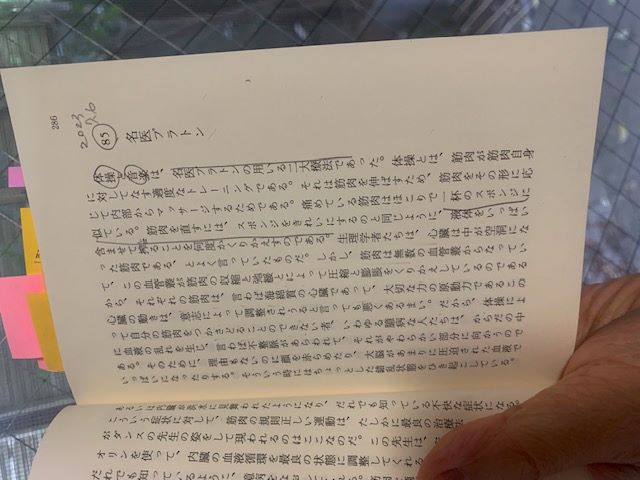 286
2023
7.6
85 名医プラトン
体操と音楽は、名医プラトンの用いる二大療法であった。体操とは、筋肉が筋肉自身
に対してなす適度なトレーニングである。それは筋肉を伸ばすため、筋肉をその形に応
じて内部からマッサージするためである。痛めている筋肉はほこりで一杯のスポンジに
似ている。筋肉を直すには、スポンジをきれいにするのと同じように、液体をいっぱい
含ませて搾ることを何度かくりかえすのである。生理学者たちは、心臓は中が空洞にな
った筋肉である、とよく言っていたものだ。しかし、筋肉は無数の血管叢からなってい
て、この血管叢が筋肉の収縮と弛緩とによって圧縮と膨脹をくりかえしているのである
から、それぞれの筋肉は、言わば海綿質の心臓であって、大切な力の原動力であるこの
心臓の動きは、意志によって調整されうると言っても悪くあるまい。だから、体操によ
って自分の筋肉をつかさどることのできない者、いわゆる臆病な人たちは、からだの中
に血液の乱れを生じ、言わば不整脈があらわれて、それがやわらかい部分に向かうので
ある。そのために、理由もないのに顔を赤らめたり、大脳があまりに圧迫された血液で
いっぱいになったりする。そういう時にはちょっとした錯乱状態をひき起こしている。
あるいは内臓が洪水に見舞われたようになり、だれでも知っている不快な症状になる。
こういう症状に対して、筋肉の規則正しい運動は、たしかに最良の治療法
がダンスの先生の姿をして現われるのはここなのだ。この先生は、
オリンを使って、内臓の血液循環を最良の状態に調整してくれる
だれでも知っているように、臆病をなおしてくれる。